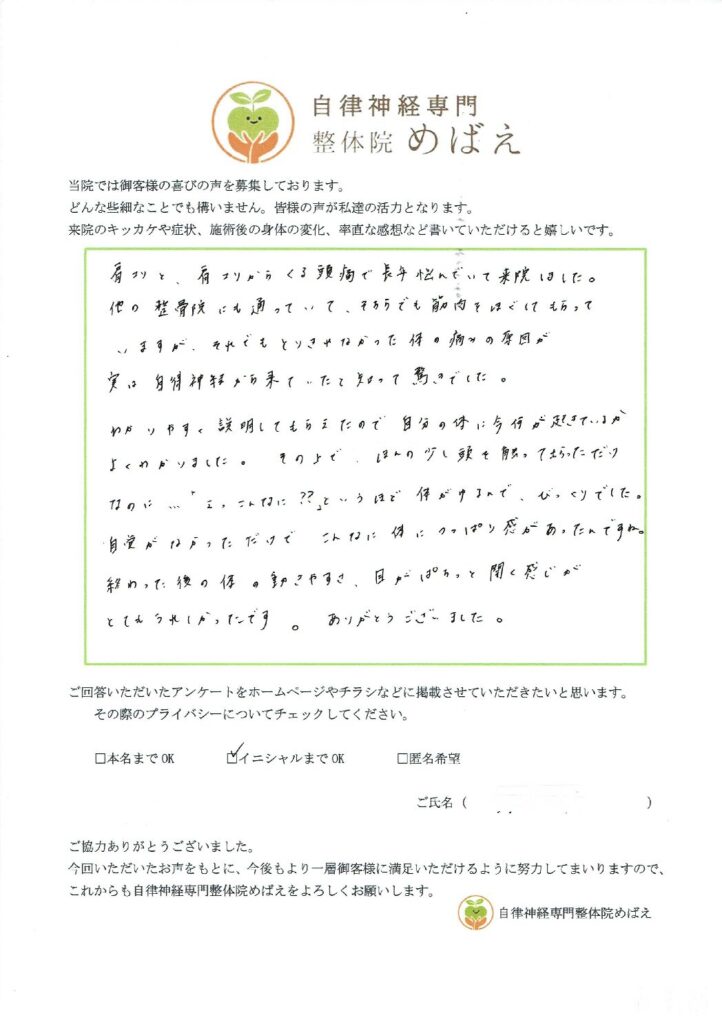 自律神経専門
整体院 めばえ
当院では御客様の喜びの声を募集しております。
どんな些細なことでも構いません。皆様の声が私達の活力となります。
来院のキッカケや症状、施術後の身体の変化、率直な感想など書いていただけると嬉しいです。
肩コリと、肩コリからくる頭痛で長年悩んでいて来院しました。
他の整骨院にも通っていて、そちらでも筋肉をほぐしてもらって
いますが、それでもとりきれなかった体の痛みの原因が
実は自律神経から来ていたと知って驚きでした。
わかりやすく説明してもらえたので自分の体に今何が起きているか
よくわかりました。その上で、ほんの少し頭を触ってもらっただけ
なのに…「えっこんなに??」というほど体がゆるんで、びっくりでした。
自覚がなかっただけでこんなに体につっぱり感があったんですね。
終わった後の体の動きやすさ、目がぱちっと開く感じが
とてもうれしかったです。ありがとうございました。
ご回答いただいたアンケートをホームページやチラシなどに掲載させていただきたいと思います。
その際のプライバシーについてチェックしてください。
□本名までOK ☑イニシャルまでOK □匿名希望
ご氏名( )
ご協力ありがとうございました。
今回いただいたお声をもとに、今後もより一層御客様に満足いただけるように努力してまいりますので、
これからも自律神経専門整体院めばえをよろしくお願いします。
自律神経専門整体院めばえ